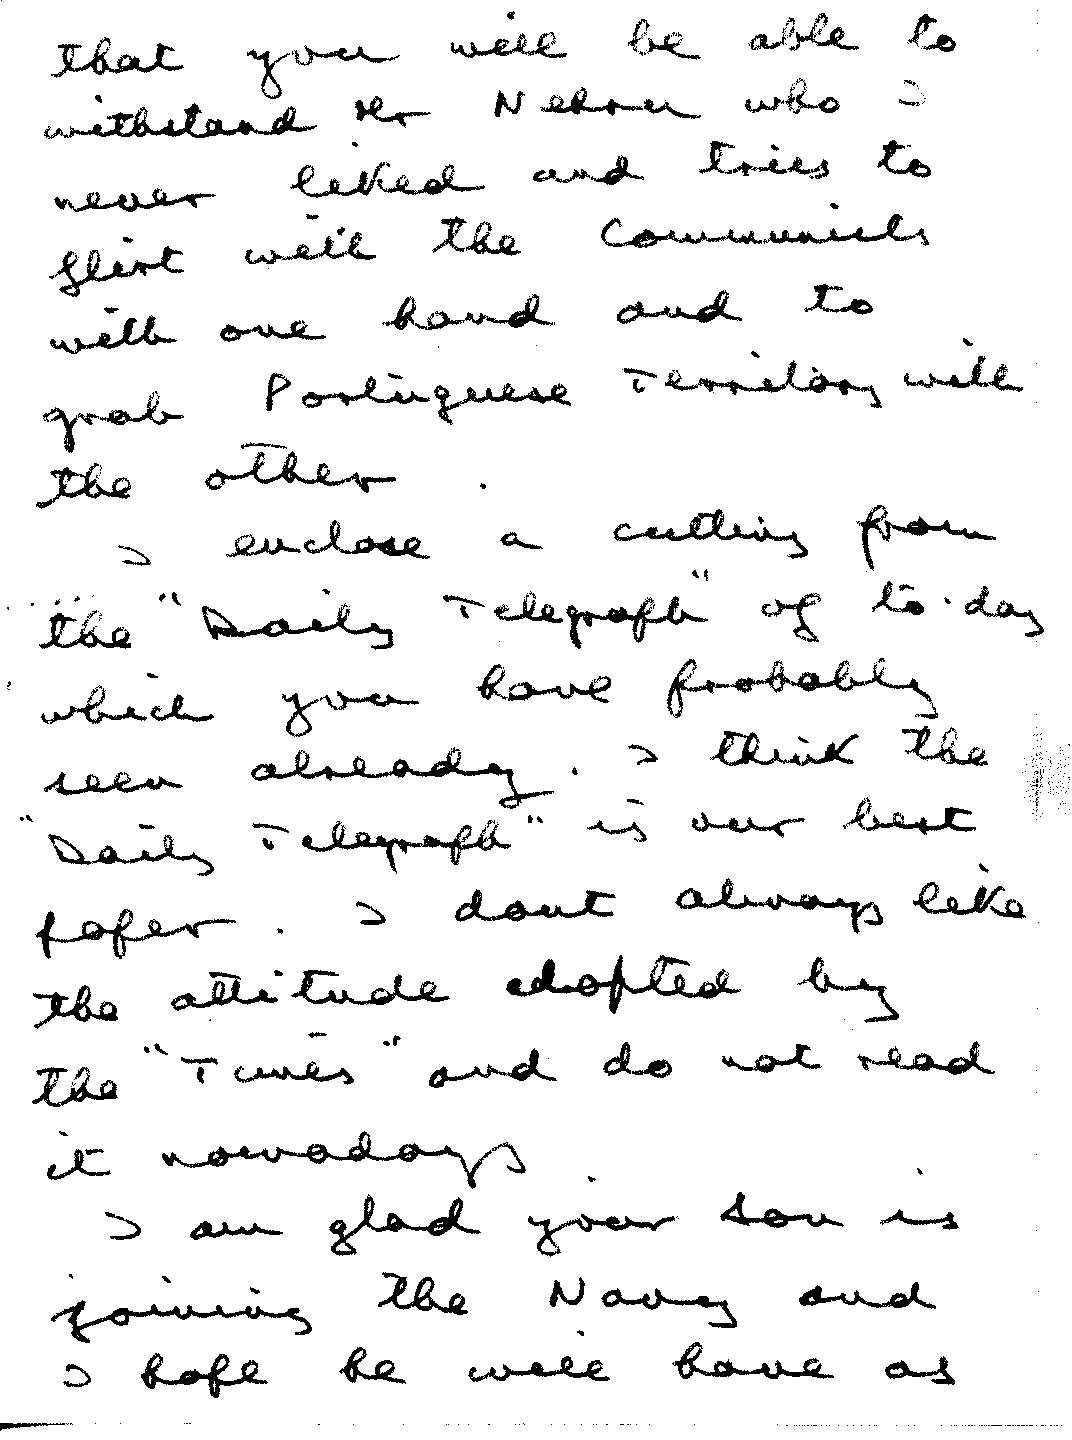 that you will be able to
withstand Mr Nehru who I
never liked and tries to
flirt with the Communists
with one hand and to
grab Portuguese Territory with
the other.
I enclose a cutting from
the "Daily Telegraph" of to-day
which you have probably
seen already. I think the
"Daily Telegraph" is our best
paper. I dont always like
the attitude adopted by
the "Times" and do not read
it nowadays
I am glad your son is
joining the Navy and
I hope he will have as